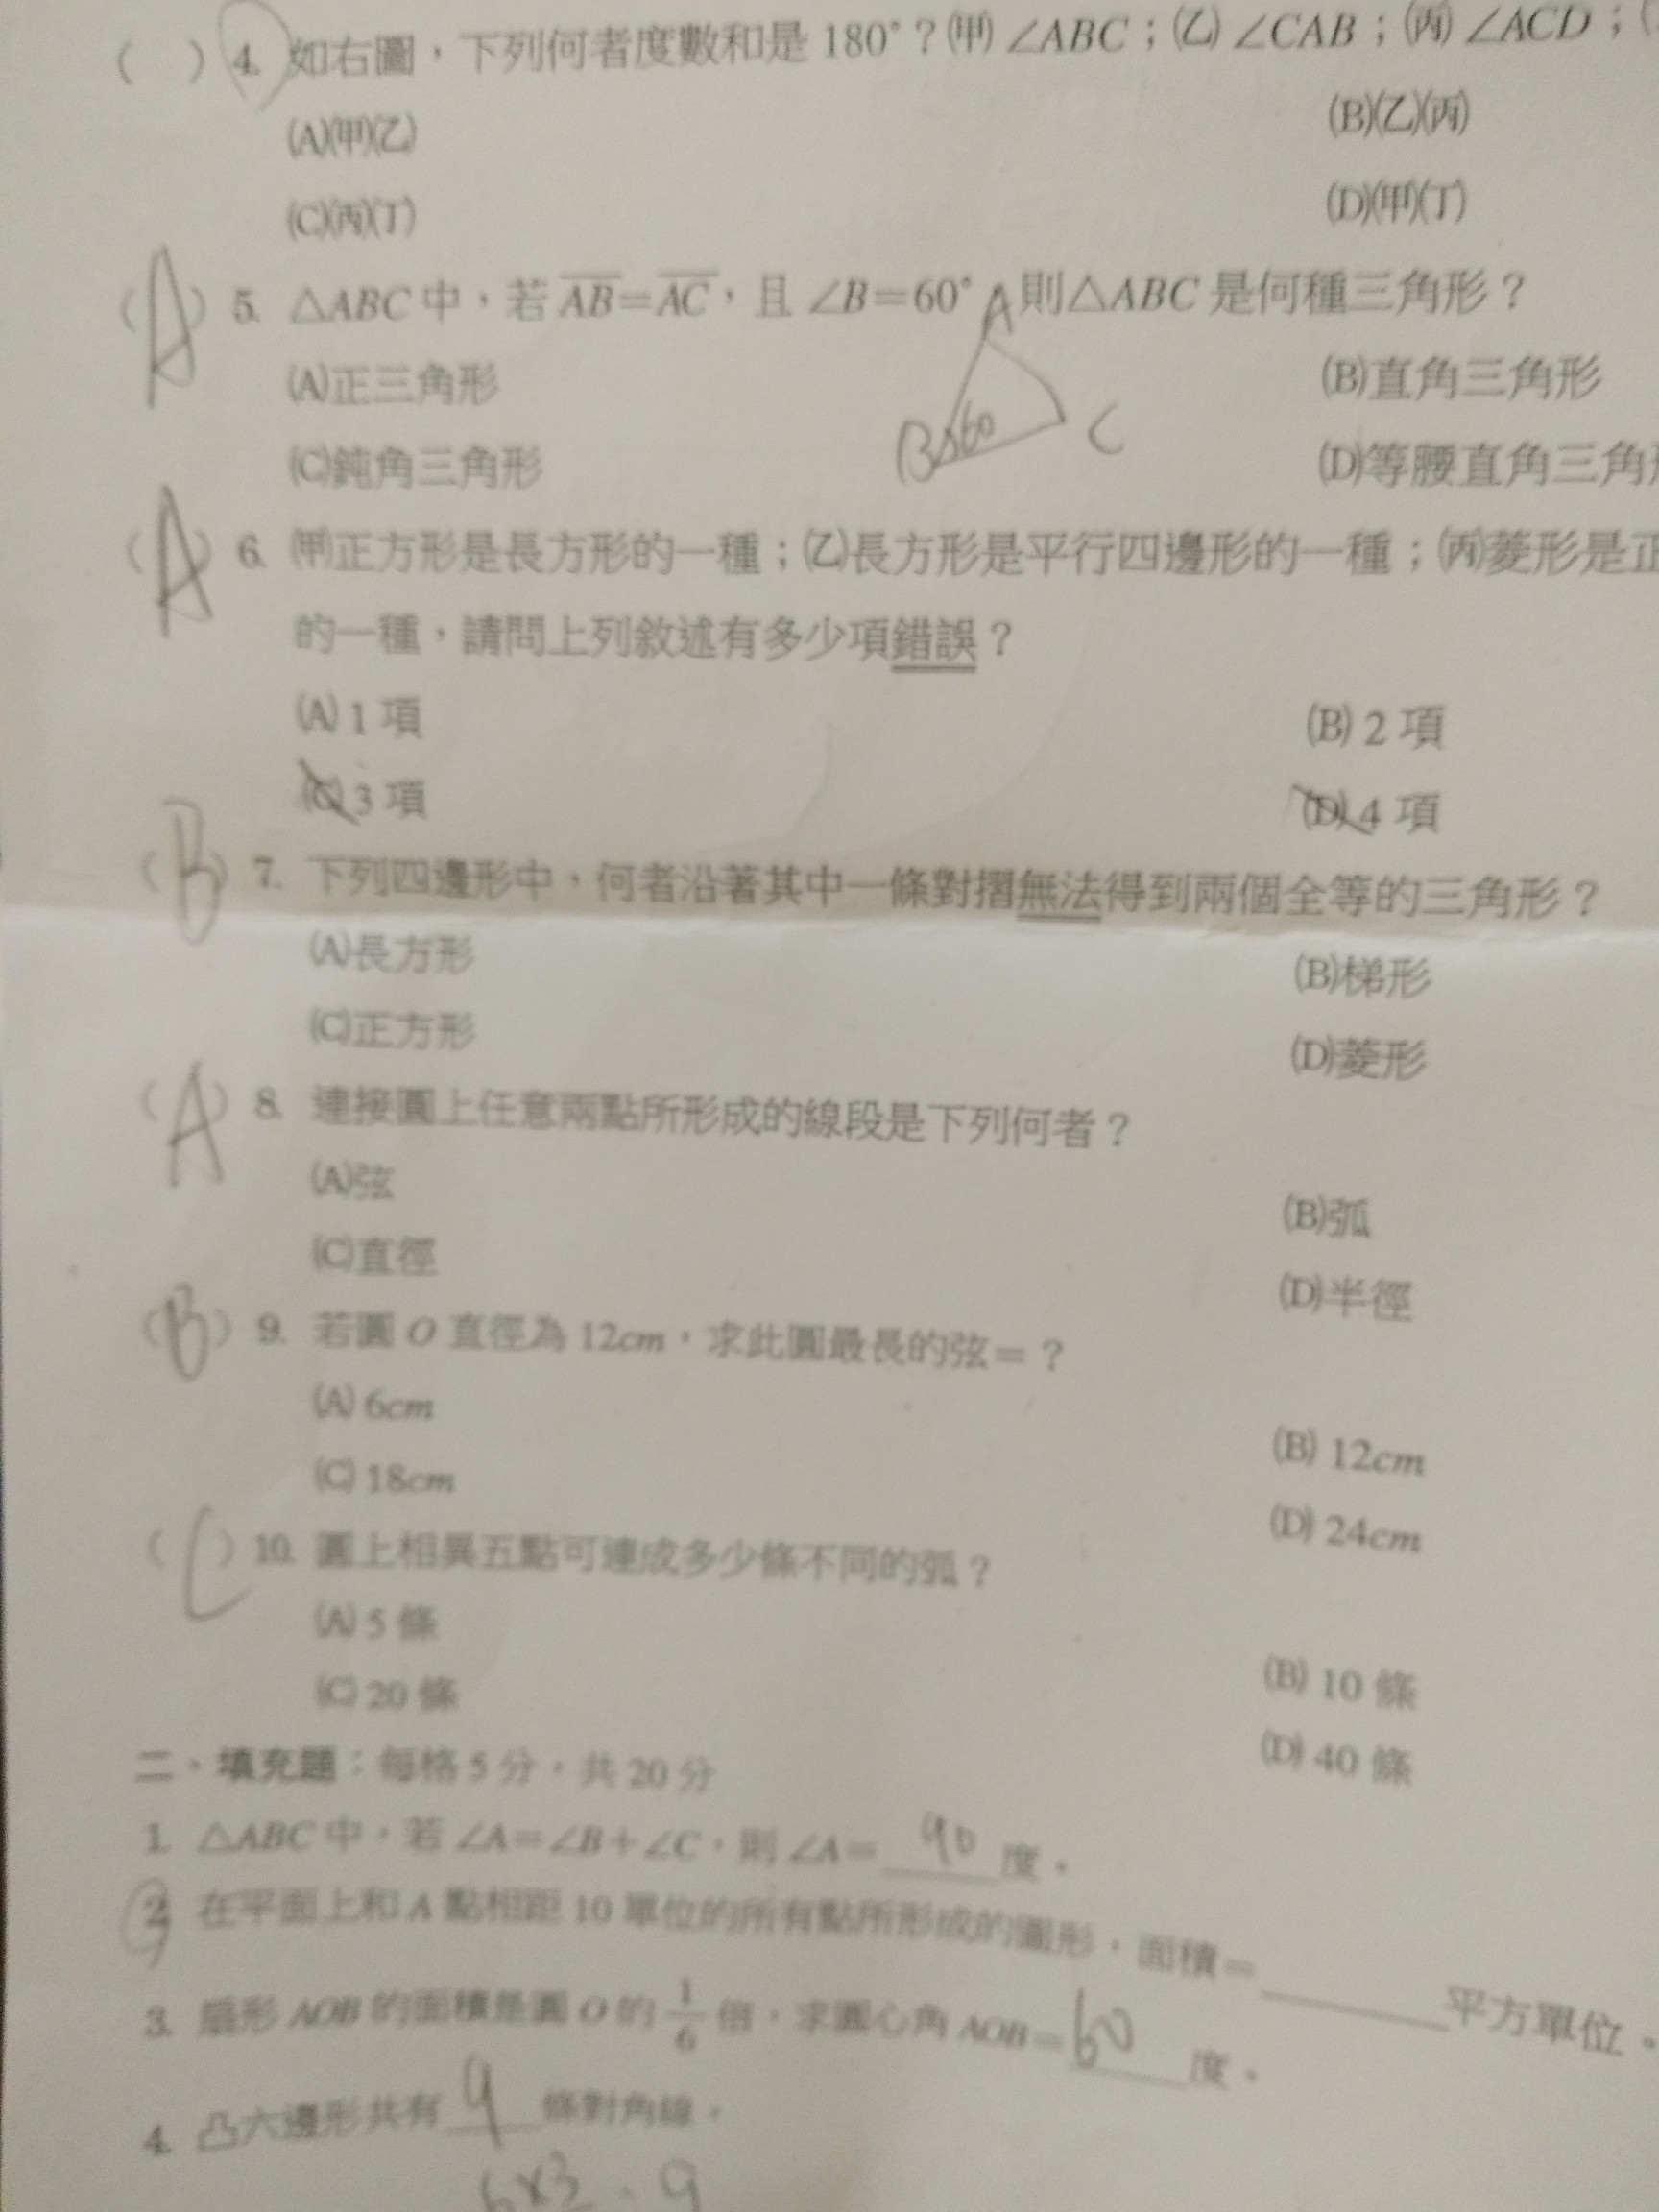 ( ) 4. 如右圖，下列何者度數和是180°？(甲)∠ABC；(乙)∠CAB；(丙)∠ACD；(
(A)(甲)(乙) (B)(乙)(丙)
(C)(丙)(丁) (D)(甲)(丁)
(A) 5. △ABC中，若AB=AC，且∠B=60°，則△ABC是何種三角形？
A
(A)正三角形 (B)直角三角形
B 60 C
(C)鈍角三角形 (D)等腰直角三角形
(A) 6. (甲)正方形是長方形的一種；(乙)長方形是平行四邊形的一種；(丙)菱形是正
的一種，請問上列敘述有多少項錯誤？
(A) 1 項 (B) 2 項
(C) 3 項 (D) 4 項
(B) 7. 下列四邊形中，何者沿著其中一條對摺無法得到兩個全等的三角形？
(A)長方形 (B)梯形
(C)正方形 (D)菱形
(A) 8. 連接圓上任意兩點所形成的線段是下列何者？
(A)弦 (B)弧
(C)直徑 (D)半徑
(B) 9. 若圓O直徑為12cm，求此圓最長的弦=？
(A) 6cm (B) 12cm
(C) 18cm (D) 24cm
(C) 10. 圓上相異五點可連成多少條不同的弧？
(A) 5 條 (B) 10 條
(C) 20 條 (D) 40 條
二、填充題：每格5分，共20分
1. △ABC中，若∠A=∠B+∠C，則∠A=90度。
2. 在平面上和A點相距10單位的所有點所形成的圖形，面積=____平方單位。
3. 扇形AOB的面積是圓O的1/6倍，求圓心角AOB=60度。
4. 凸六邊形共有9條對角線。